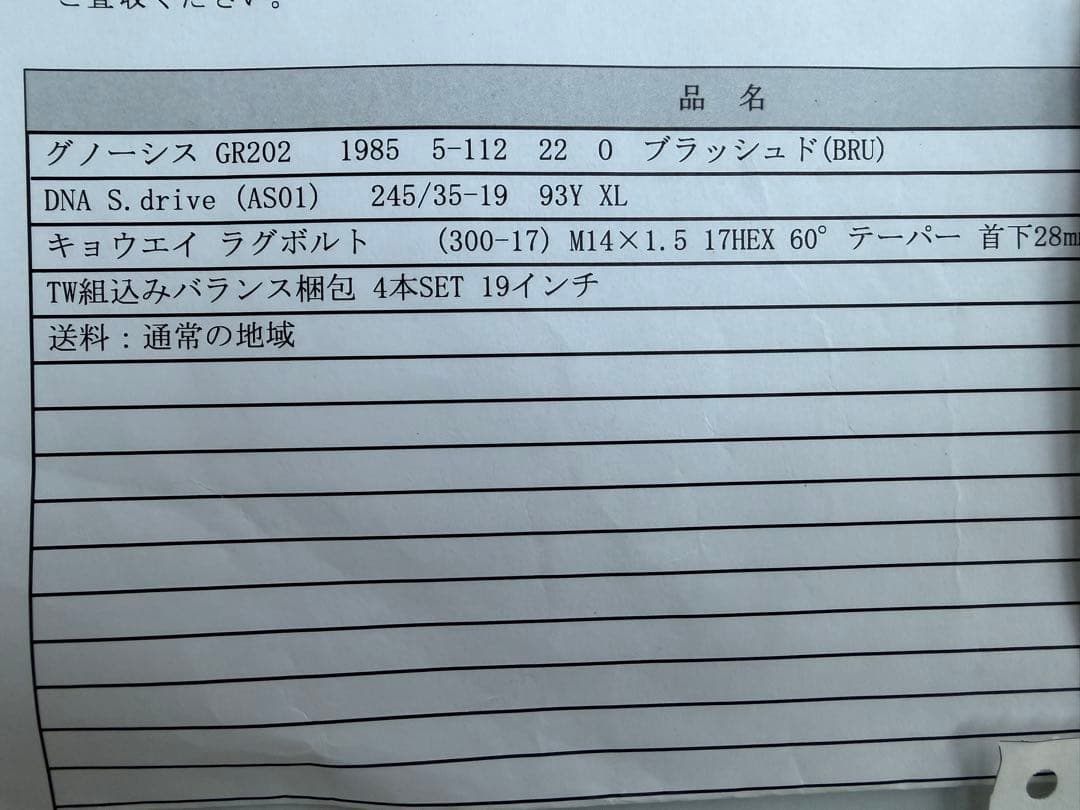 ご査収ください。
品 名
グノーシス GR202 1985 5-112 22 0 ブラッシュド(BRU)
DNA S.drive (AS01) 245/35-19 93Y XL
キョウエイ ラグボルト (300-17) M14×1.5 17HEX 60° テーパー 首下28mm
TW組込みバランス梱包 4本SET 19インチ
送料：通常の地域